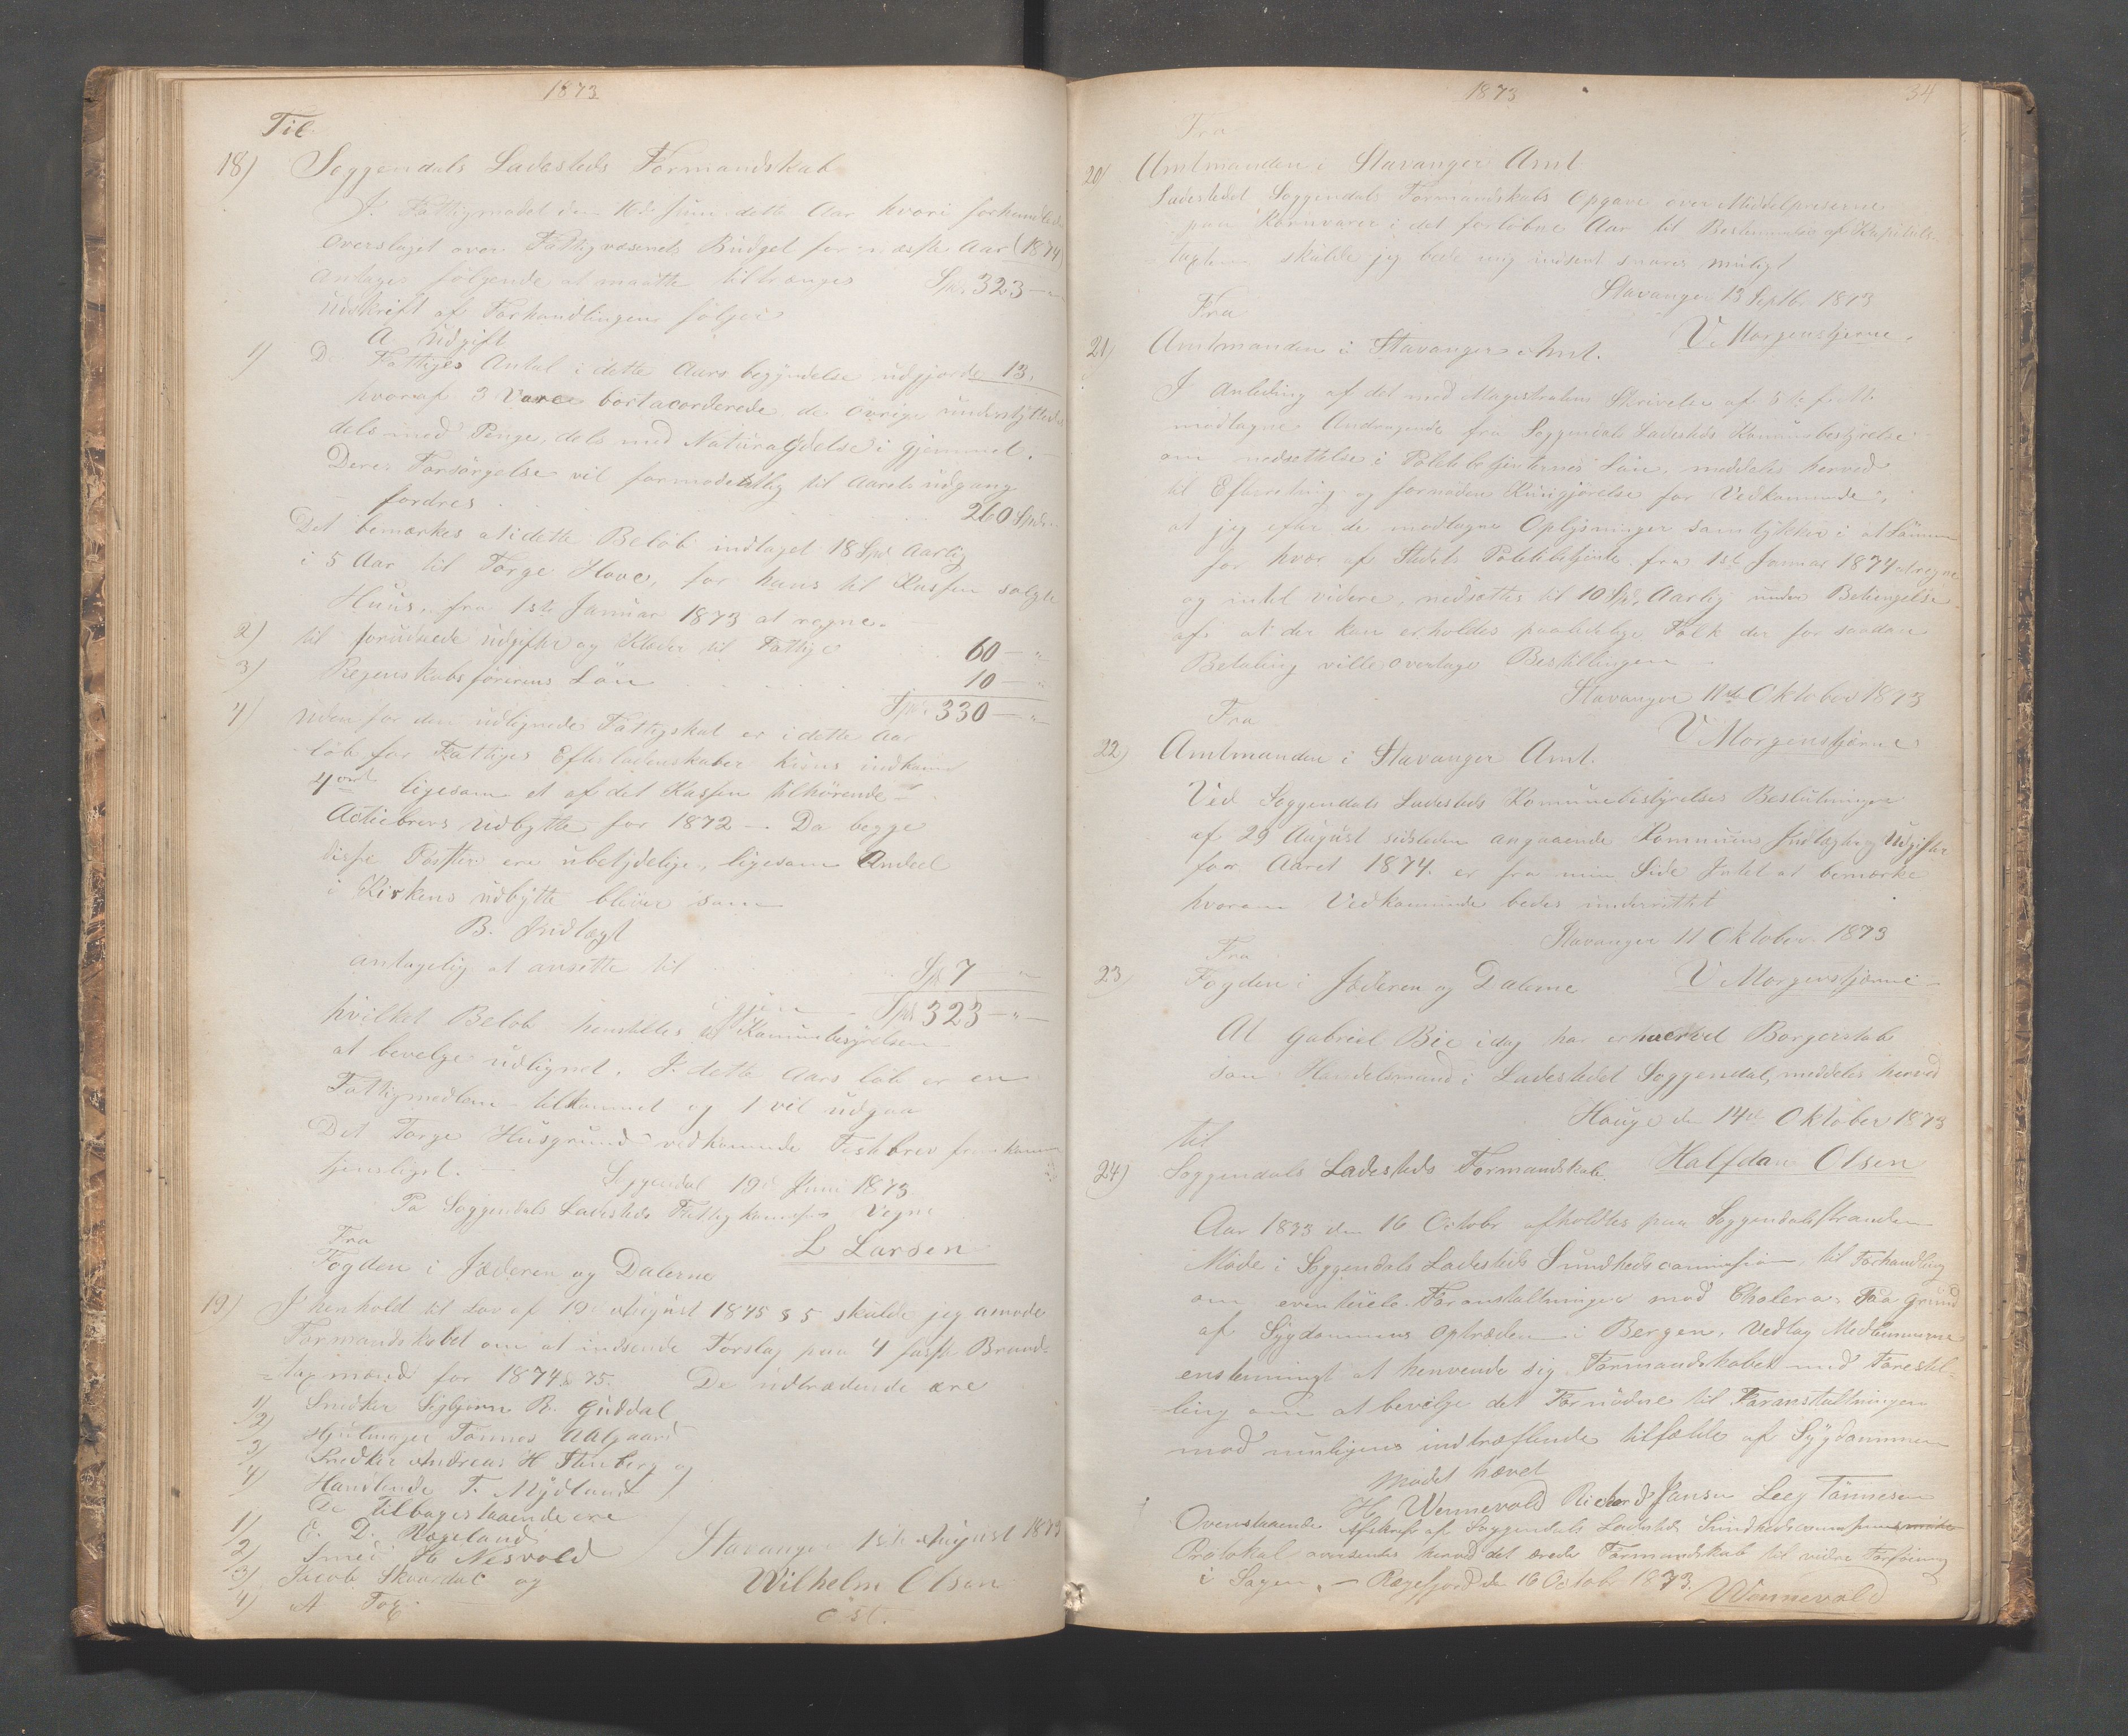 1873
Til
18) Soggendals Ladesteds Formandskab
I Fattigmødet den 16de Juni dette Aar hvori forhandledes
Overslaget over Fattigvæsenets Budget for næste Aar (1874)
antages følgende at maatte tiltrænges Spd. 323 — "
Udskrift af Forhandlingen følger
A Udgift
1) D. Fattiges Antal i dette Aars begyndelse udgjorde 13,
hvoraf 3 Vare bortacorderede de øvrige understøttedes
dels med Penge, dels med Naturalydelse i Hjemmet. —
Deres Forsørgelse vil formodentlig til Aarets udgang
fordres . . . . 260 Spd. "
Det bemærkes at i dette Beløb indtaget 18 Spd Aarlig
i 5 Aar til Torge Hove, for hans til Kassen solgte
Huus, fra 1ste Januar 1873 at regne.
2) til forudsede udgifter og Klæder til Fattige 60 — "
3) Regenskabsførerens Løn . . . . 10 — "
Spd. 330 — "
4) Uden for den udlignede Fattigskat er i dette Aar
løb for Fattiges Efterladenskaber kuns indkomt
4 ort ligesom et af det Kassen tilhørende
Actiebrevs Udbytte for 1872 —. Da begge
disse Poster ere ubetydelige, ligesom Andeel
i Kirkens udbytte bliver som
B. Indtægt
antagelig at ansætte til Sp 7 — "
igjen Spd 323 — " —
hvilket Beløb henstilles til Kommunebestyrelsen
at bevelge udlignet. I dette Aars løb er en
Fattigmedlem tilkommet og 1 vil udgaa
Det Torge Husgrund vedkommende Festebrev
tjenstligst. — Soggendal 19de Juni 1873
Pa Soggendals Ladesteds Fattigkommissions Vegne
L Larsen
Fra
Fogden i Jæderen og Dalerne
19) I henhold til Lov af 19de August 1845 § 5 skulde jeg anmode
Formandskabet om at indsende Forslag paa 4 faste Brand=
=taxtmænd for 1874 & 75. De udtrædende ere
1) Snedker Sigbjørn R. Guddal,
2) Hjulmager Tønnes Aalgaard
3) Snedker Andreas H Stenberg og
4) Handlende T. Mydland
De Tilbagestaaende ere
1) E. D. Rægeland
2) Smed H Nesvold Stavanger 1ste August 1873
3) Jacob Skaardal og Wilhelm Olson
4) A Fog cst.
1873 34
Fra
20) Amtmanden i Stavanger Amt
Ladestedet Soggendals Formandskabs Opgave over Middelpriserne
paa Kornvarer i det forløbne Aar til Bestemmelse af Kapitels=
taxten skulde jeg bede mig indsent snarest muligt
Stavanger 13 Septbr 1873
V. Morgenstjerne
Fra
21) Amtmanden i Stavanger Amt.
I Anledning af det med Magistratens Skrivelse af 5te
modtagne Andragende fra Soggendals Ladesteds Kommunebestyrelse
om nedsættelse i Politibetjenternes Løn, meddeles herved
til Efterretning og fornøden Kundgjørelse for Vedkommende,
at jeg efter de modtagne Oplysninger samtykker i at Lønnen
for hver af Stedets Politibetjente fra 1ste Januar 1874 at regne
og indtil videre, nedsættes til 10 Spd. Aarlig under Betingelse
af, at der kan erholdes paalidelige Folk der for saadan
Betaling ville overtage Bestillingen —
Stavanger 11te Oktober 1873
V Morgenstjerne
Fra
22) Amtmanden i Stavanger Amt.
Ved Soggendals Ladesteds Komunebestyrelses Beslutninger
af 29 August sidstleden angaaende Kommunens Indtægter og Udgifter
for Aaret 1874. er fra min Side Intet at bemærke
hvorom Vedkommende bedes underrettet
Stavanger 11 Oktober 1873
V Morgenstjerne —
Fra
23) Fogden i Jæderen og Dalerne
At Gabriel Bie idag har erhvervet Borgerskab
som Handelsmand i Ladestedet Soggendal, meddeles herved
Hauge den 14de Oktober 1873
Halfdan Olsen
til
24) Soggendals Ladesteds Formandskab.
Aar 1873 den 16 Octobr afholdtes paa Soggendalsstranden
Møde i Soggendals Ladesteds Sundhedscommission, til Forhandling
om eventuele Foranstaltninger mod Cholera. Paa Grund
af Sygdommens Optræden i Bergen, Vedtog Medlemmerne
enstemmigt at henvende sig Formandskabet med Forestil=
=ling om at bevilge det Fornødne til Foranstaltningen
mod muligens indtræffende tilfælde af Sygdommen
Mødet hævet
H. Wennevold Rickard Jansen Leey Tønnesen
Ovenstaaende Afskrift af Soggendals Ladesteds Sundhedscommissions
Protokol oversendes herved det ærede Formandskab til vidre Forføining
i Sagen. — Rægefjord de 16 Octobr 1873.
Wennevold